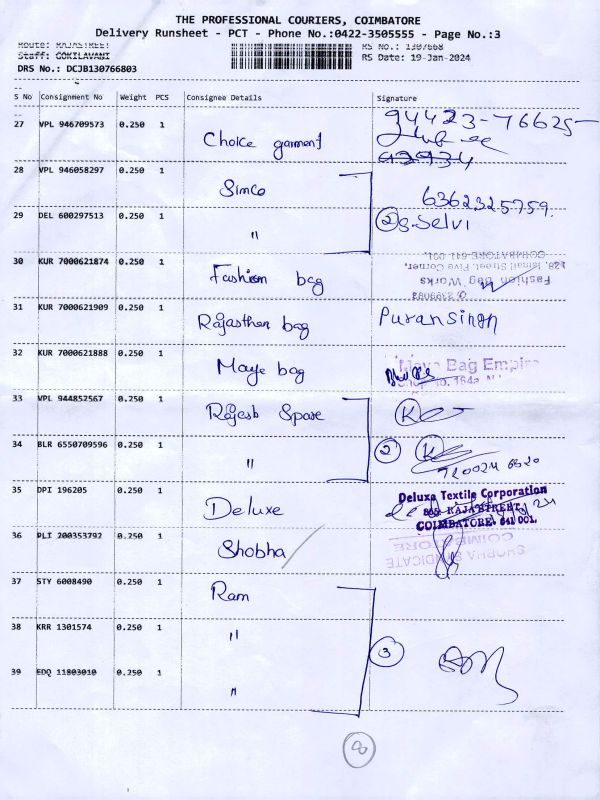 THE PROFESSIONAL COURIERS, COIMBATORE
Delivery Runsheet - PCT - Phone No.:0422-3505555 - Page No.:3
Route: RAJASTREET RS No.: 1307668
Staff: GOKILAVANI RS Date: 19-Jan-2024
DRS No.: DCJB130766803
S No Consignment No Weight PCS Consignee Details Signature
27 VPL 946709573 0.250 1 Choice garment 94423-76625
28 VPL 946058297 0.250 1 Simco 6362325759.
29 DEL 600297513 0.250 1 " 2 S. Selvi
30 KUR 7000621874 0.250 1 Fashion bag
Fashion Bag Works
128, Ismail Street, Five Corner,
COIMBATORE-641 001.
31 KUR 7000621909 0.250 1 Rajasthan bag Puransingh
32 KUR 7000621888 0.250 1 Maya bag Maya Bag Empire
Shop No. 164a,
33 VPL 944852567 0.250 1 Rajesh Spare
34 BLR 6550709596 0.250 1 " 2
35 DPI 196205 0.250 1 Deluxe
Deluxe Textile Corporation
RAJA STREET
COIMBATORE- 641 001.
36 PLI 200353792 0.250 1 Shobha
SHOBHA SYNDICATE
COIMBATORE
37 STY 6008490 0.250 1 Ram
38 KRR 1301574 0.250 1 "
3
39 EDQ 11803010 0.250 1 "
8